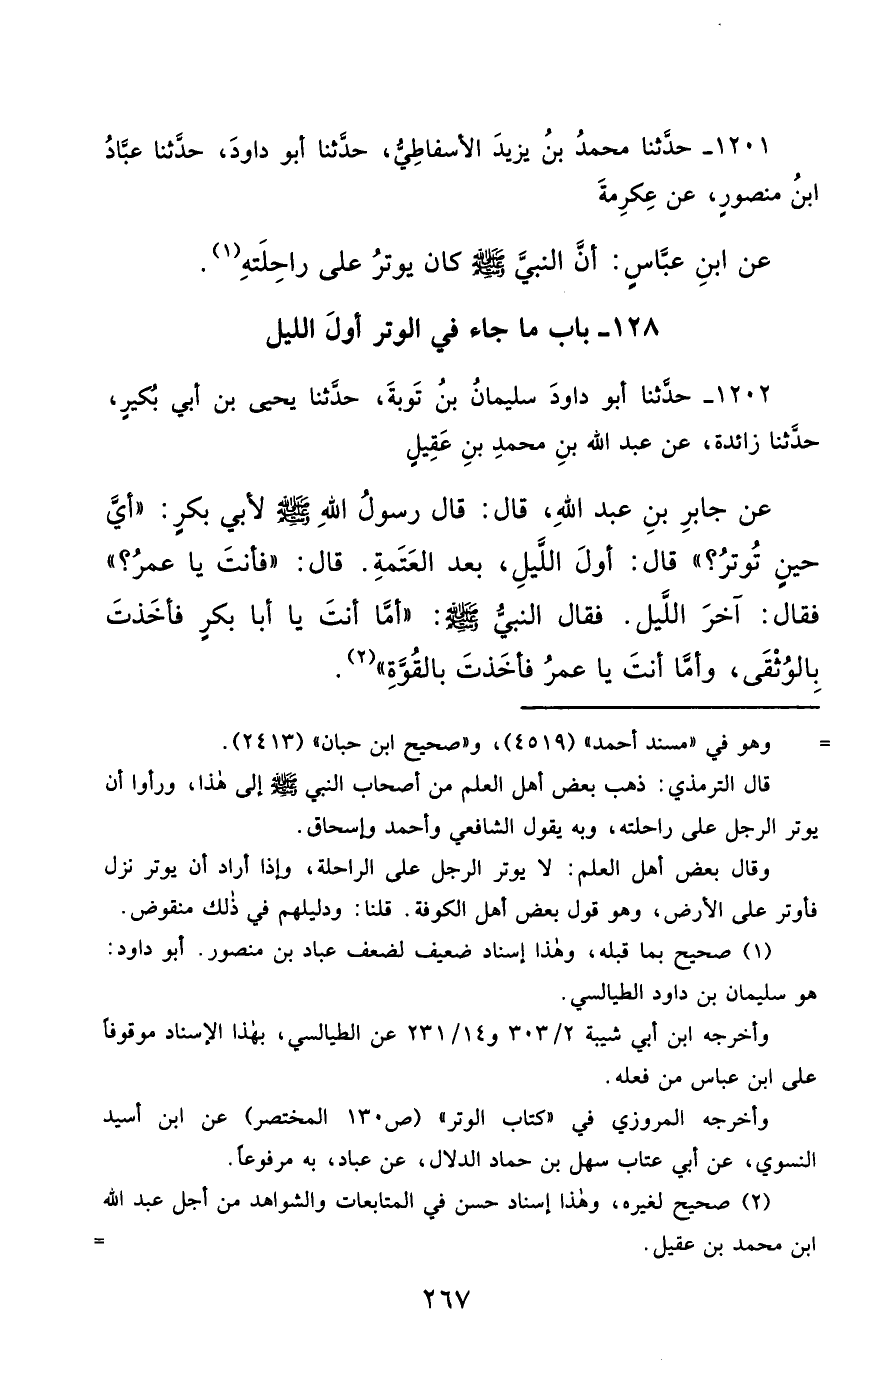 ١٢٠١ـ حدَّثنا محمدُ بنُ يزيدَ الأسفاطِيُّ، حدَّثنا أبو داودَ، حدَّثنا عبَّادُ
ابنُ منصورٍ، عن عِكرِمةَ
عن ابنِ عبَّاسٍ: أنَّ النبيَّ ﷺ كان يوترُ على راحِلَتهِ(١).
١٢٨ـ باب ما جاء في الوتر أولَ الليل
١٢٠٢ـ حدَّثنا أبو داودَ سليمانُ بنُ تَوبةَ، حدَّثنا يحيى بن أبي بُكيرٍ،
حدَّثنا زائدة، عن عبد الله بنِ محمدِ بنِ عَقِيلٍ
عن جابرِ بنِ عبد اللهِ، قال: قال رسولُ اللهِ ﷺ لأبي بكرٍ: «أيَّ
حينٍ تُوترُ؟» قال: أولَ اللَّيلِ، بعد العَتَمةِ. قال: «فأنتَ يا عمرُ؟»
فقال: آخرَ اللَّيل. فقال النبيُّ ﷺ: «أمَّا أنتَ يا أبا بكرٍ فأخَذتَ
بِالوُثْقَى، وأمَّا أنتَ يا عمرُ فأخَذتَ بالقُوَّةِ»(٢).
= وهو في «مسند أحمد» (٤٥١٩)، و«صحيح ابن حبان» (٢٤١٣).
قال الترمذي: ذهب بعض أهل العلم من أصحاب النبي ﷺ إلى هٰذا، ورأوا أن
يوتر الرجل على راحلته، وبه يقول الشافعي وأحمد وإسحاق.
وقال بعض أهل العلم: لا يوتر الرجل على الراحلة، وإذا أراد أن يوتر نزل
فأوتر على الأرض، وهو قول بعض أهل الكوفة. قلنا: ودليلهم في ذٰلك منقوض.
(١) صحيح بما قبله، وهٰذا إسناد ضعيف لضعف عباد بن منصور. أبو داود:
هو سليمان بن داود الطيالسي.
وأخرجه ابن أبي شيبة ٣٠٣/٢ و٢٣١/١٤ عن الطيالسي، بهٰذا الإسناد موقوفاً
على ابن عباس من فعله.
وأخرجه المروزي في «كتاب الوتر» (ص١٣٠ المختصر) عن ابن أسيد
النسوي، عن أبي عتاب سهل بن حماد الدلال، عن عباد، به مرفوعاً.
(٢) صحيح لغيره، وهٰذا إسناد حسن في المتابعات والشواهد من أجل عبد الله
ابن محمد بن عقيل. =
٢٦٧